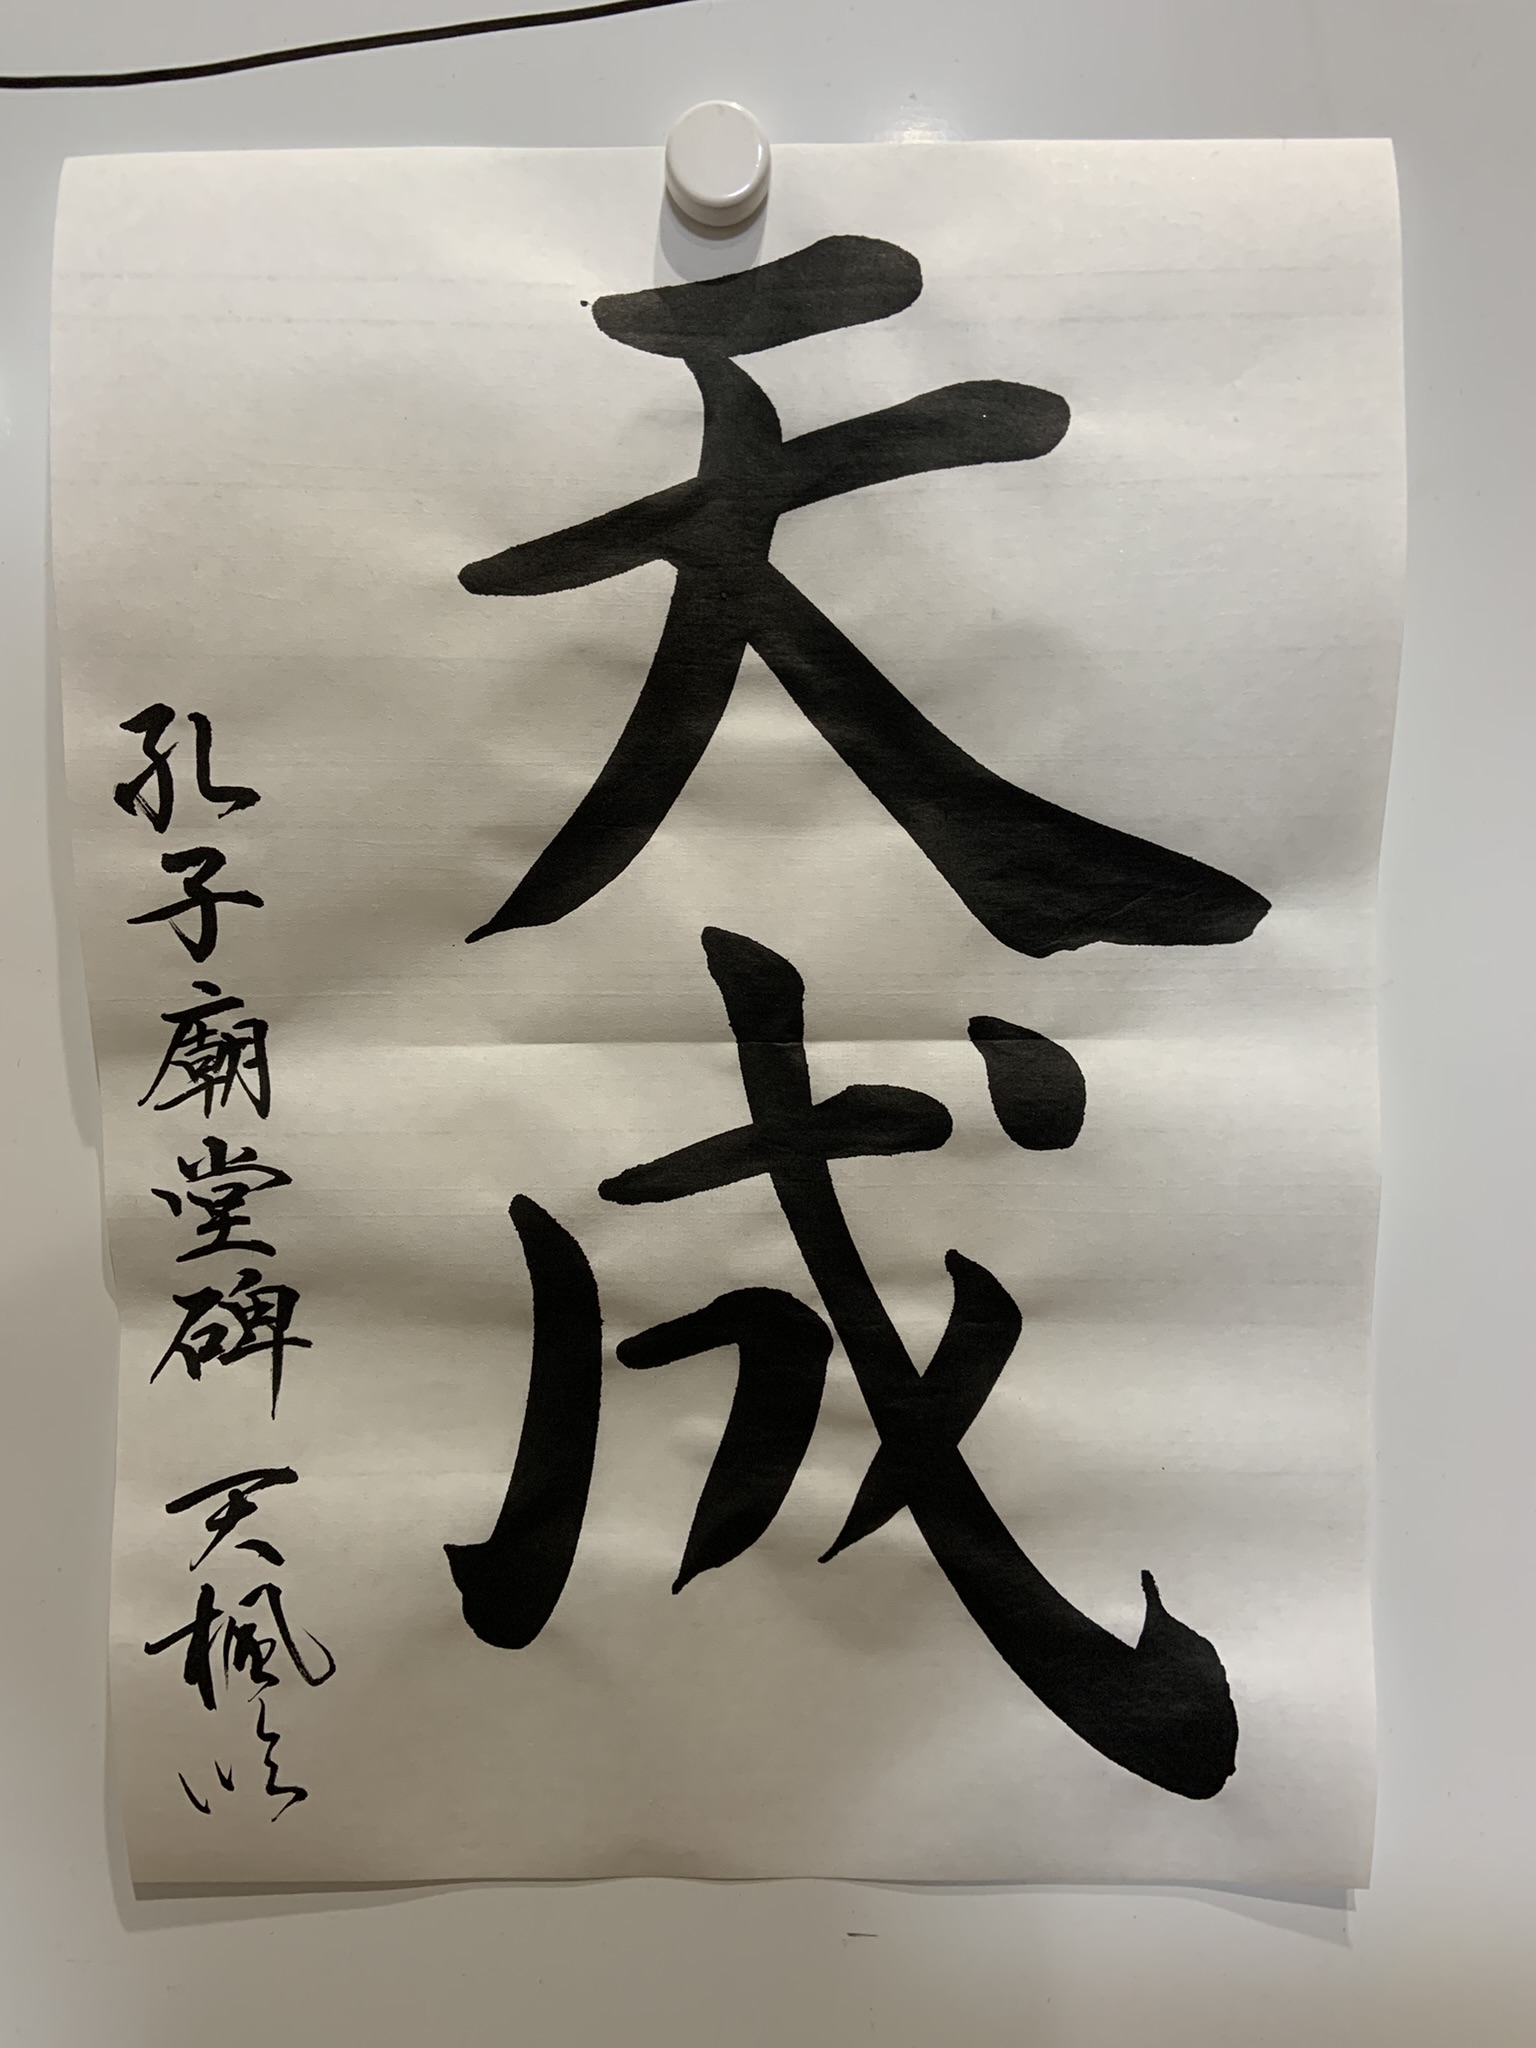 天成
孔子廟堂碑 天楓臨